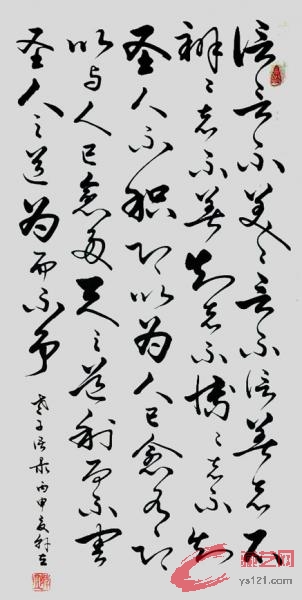 信言不美〻言不信善者不
辩〻者不善知者不博〻者不知
圣人不积既以为人己愈有既
以与人己愈多天之道利而不害
圣人之道为而不争
老子语录丙申夏
艺网
ys121.com